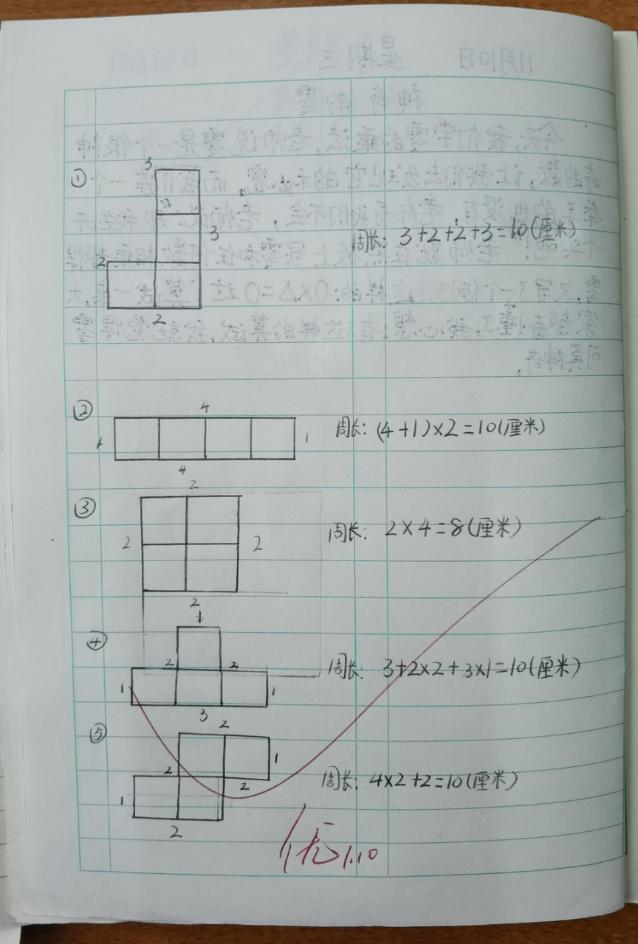 ① 3
3
2
2
周长: 3+2+2+3=10(厘米)
② 4
1
1
4
周长: (4+1)×2=10(厘米)
③ 2
2
2
2
周长: 2×4=8(厘米)
④ 1
2 2
1 1
3
周长: 3+2×2+3×1=10(厘米)
⑤ 2
1
2 2
1
2
周长: 4×2+2=10(厘米)
优 1.10